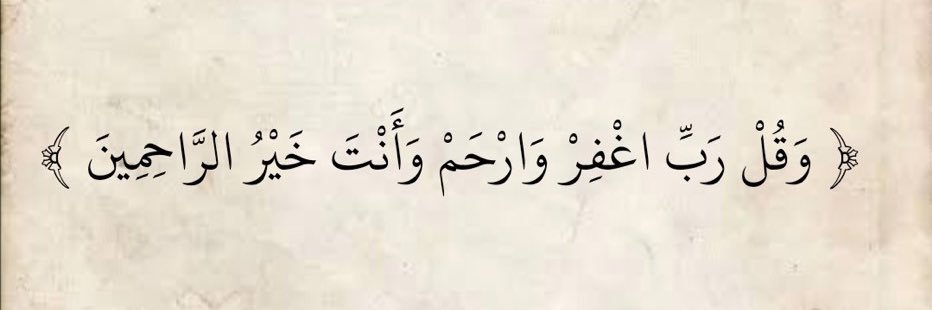 ﴿ وَقُلْ رَبِّ اغْفِرْ وَارْحَمْ وَأَنْتَ خَيْرُ الرَّاحِمِينَ ﴾